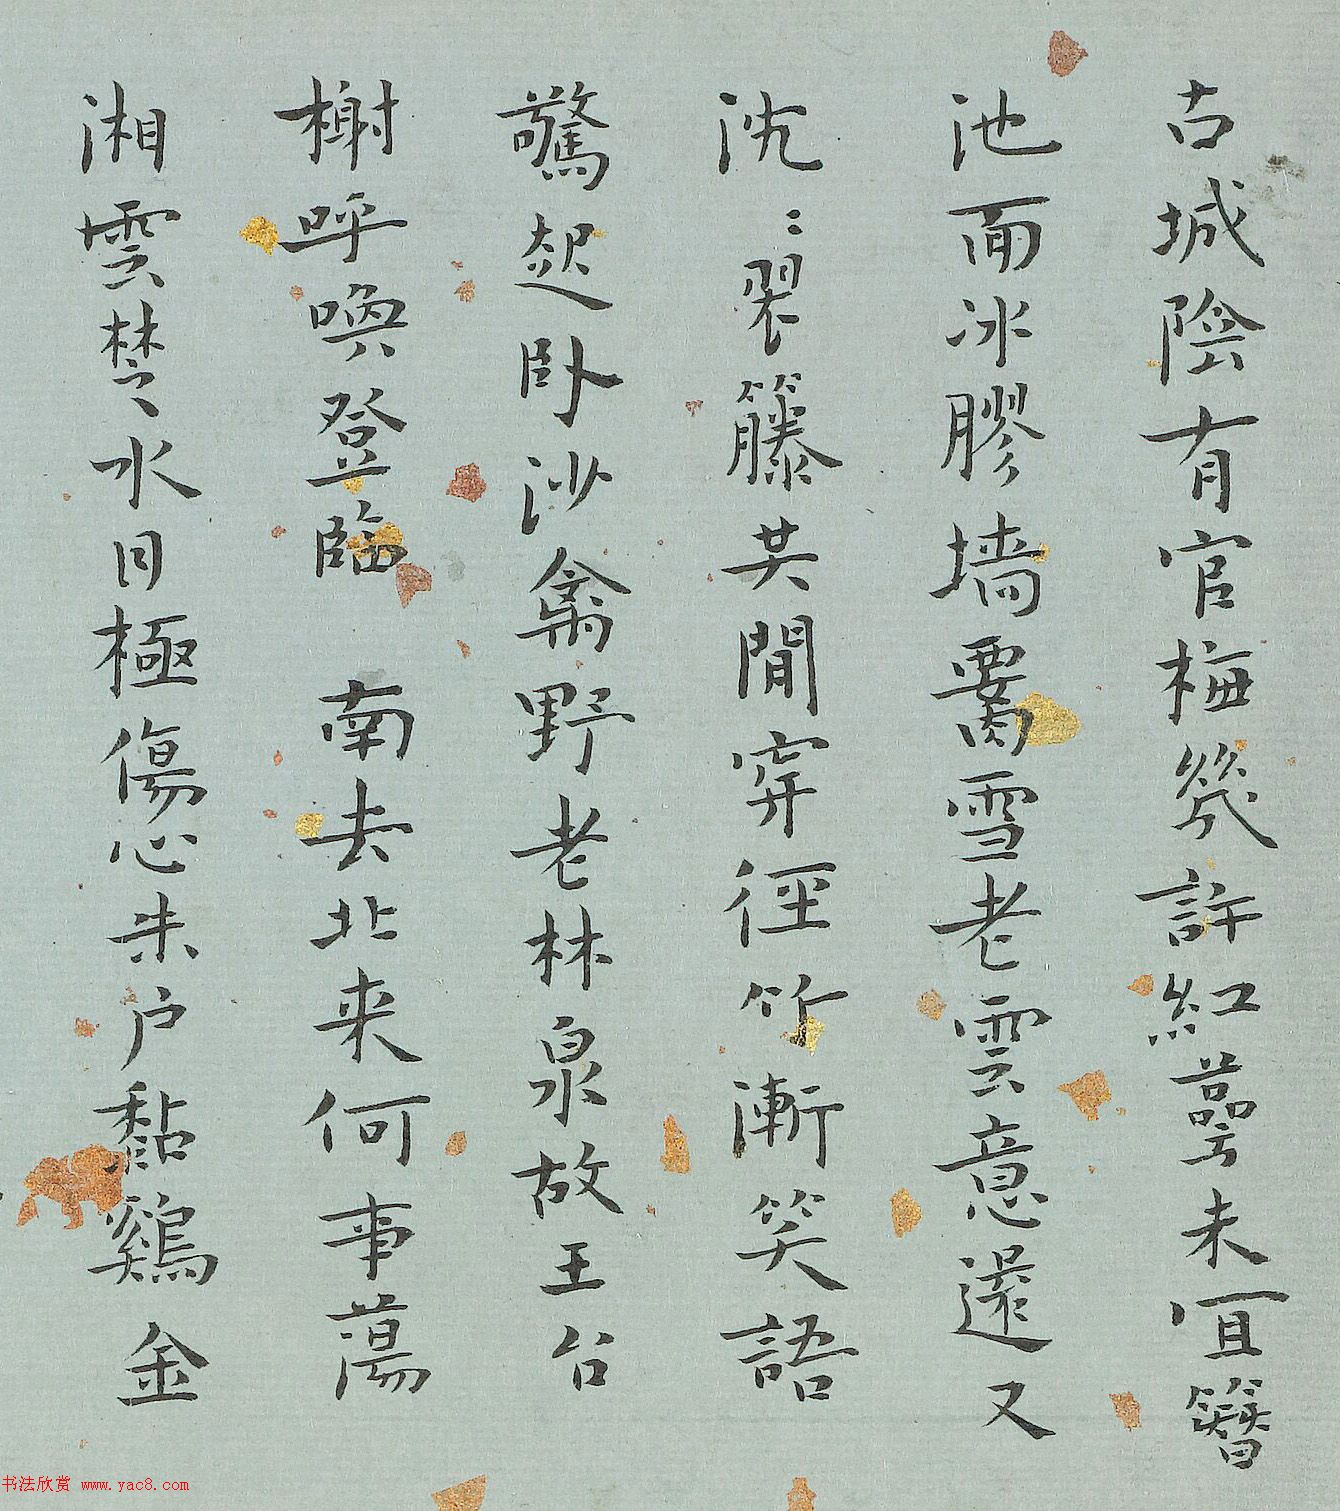 古城陰有官梅幾許紅萼未宜簪
池面冰膠墻腰雪老雲意還又
沈〻翠籐共閒穿徑竹漸笑語
驚起卧沙禽野老林泉故王台
榭呼喚登臨 南去北来何事蕩
湘雲楚水目極傷心朱户黏鷄金
书法欣赏 www.yac8.com